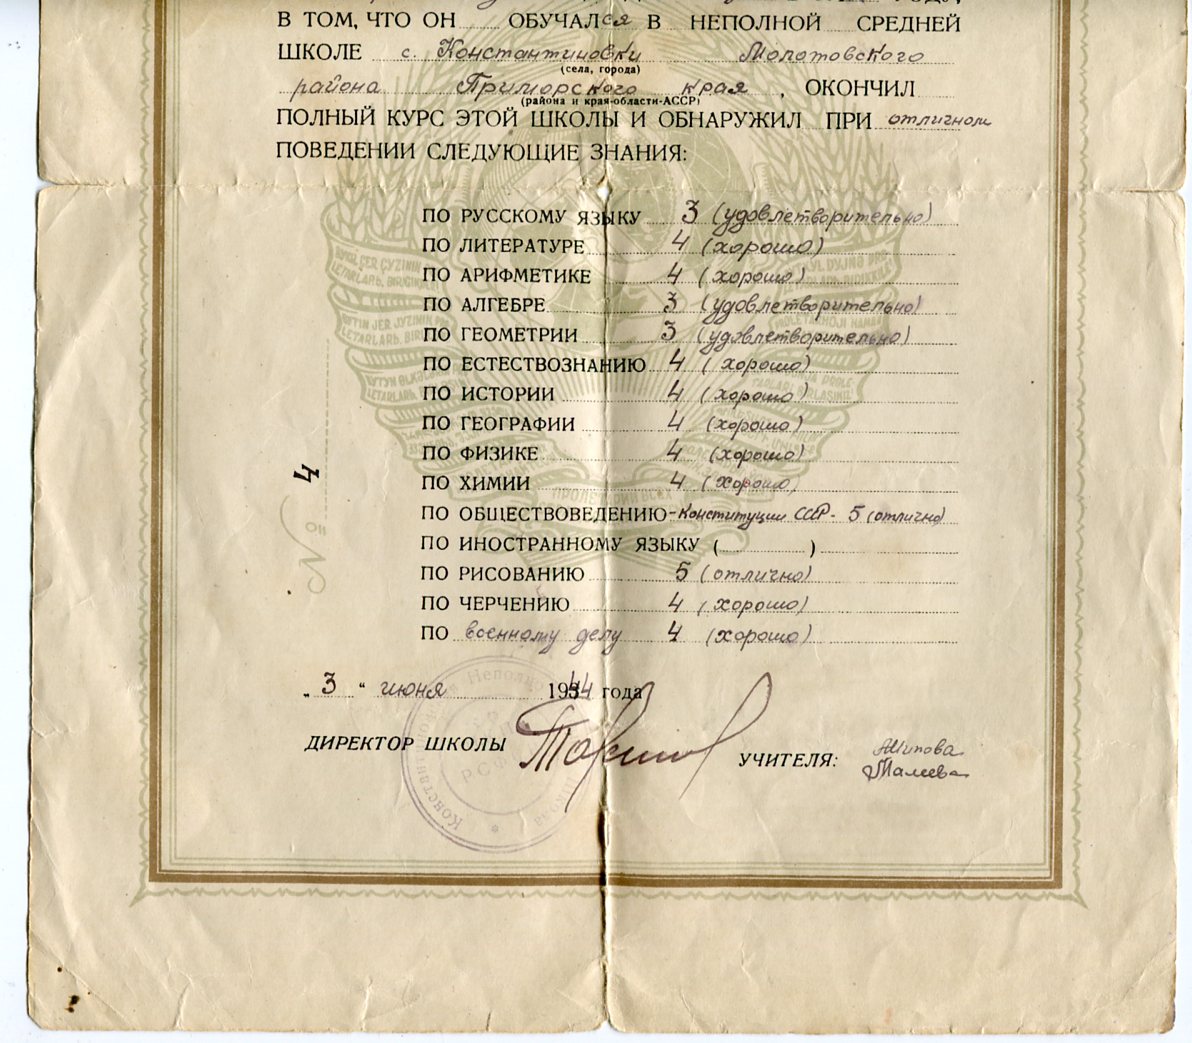 В ТОМ, ЧТО ОН ОБУЧАЛся В НЕПОЛНОЙ СРЕДНЕЙ
ШКОЛЕ с. Константиновки Молотовского
(села, города)
района Приморского края, ОКОНЧИЛ
(района и края-области-АССР)
ПОЛНЫЙ КУРС ЭТОЙ ШКОЛЫ И ОБНАРУЖИЛ ПРИ отличном
ПОВЕДЕНИИ СЛЕДУЮЩИЕ ЗНАНИЯ:
ПО РУССКОМУ ЯЗЫКУ 3 (удовлетворительно)
ПО ЛИТЕРАТУРЕ 4 (хорошо)
ПО АРИФМЕТИКЕ 4 (хорошо)
ПО АЛГЕБРЕ 3 (удовлетворительно)
ПО ГЕОМЕТРИИ 3 (удовлетворительно)
ПО ЕСТЕСТВОЗНАНИЮ 4 (хорошо)
ПО ИСТОРИИ 4 (хорошо)
ПО ГЕОГРАФИИ 4 (хорошо)
ПО ФИЗИКЕ 4 (хорошо)
ПО ХИМИИ 4 (хорошо)
ПО ОБЩЕСТВОВЕДЕНИЮ - Конституции СССР - 5 (отлично)
ПО ИНОСТРАННОМУ ЯЗЫКУ ( )
ПО РИСОВАНИЮ 5 (отлично)
ПО ЧЕРЧЕНИЮ 4 (хорошо)
ПО военному делу 4 (хорошо)
№ 4
„ 3 “ июня 1944 года
ДИРЕКТОР ШКОЛЫ
УЧИТЕЛЯ: